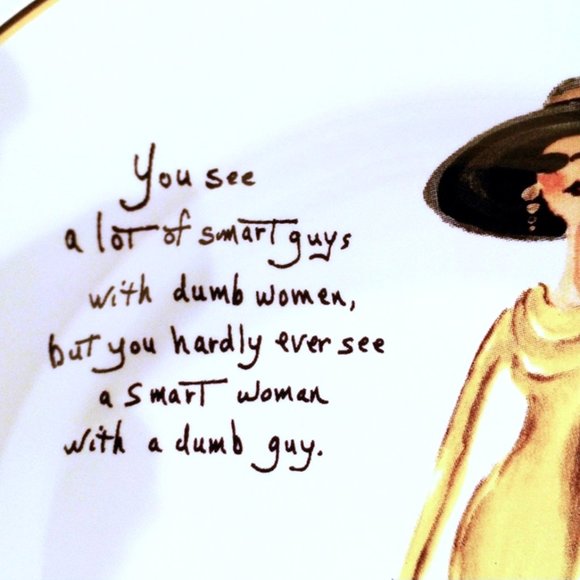 You see
a lot of smart guys
with dumb women,
but you hardly ever see
a smart woman
with a dumb guy.